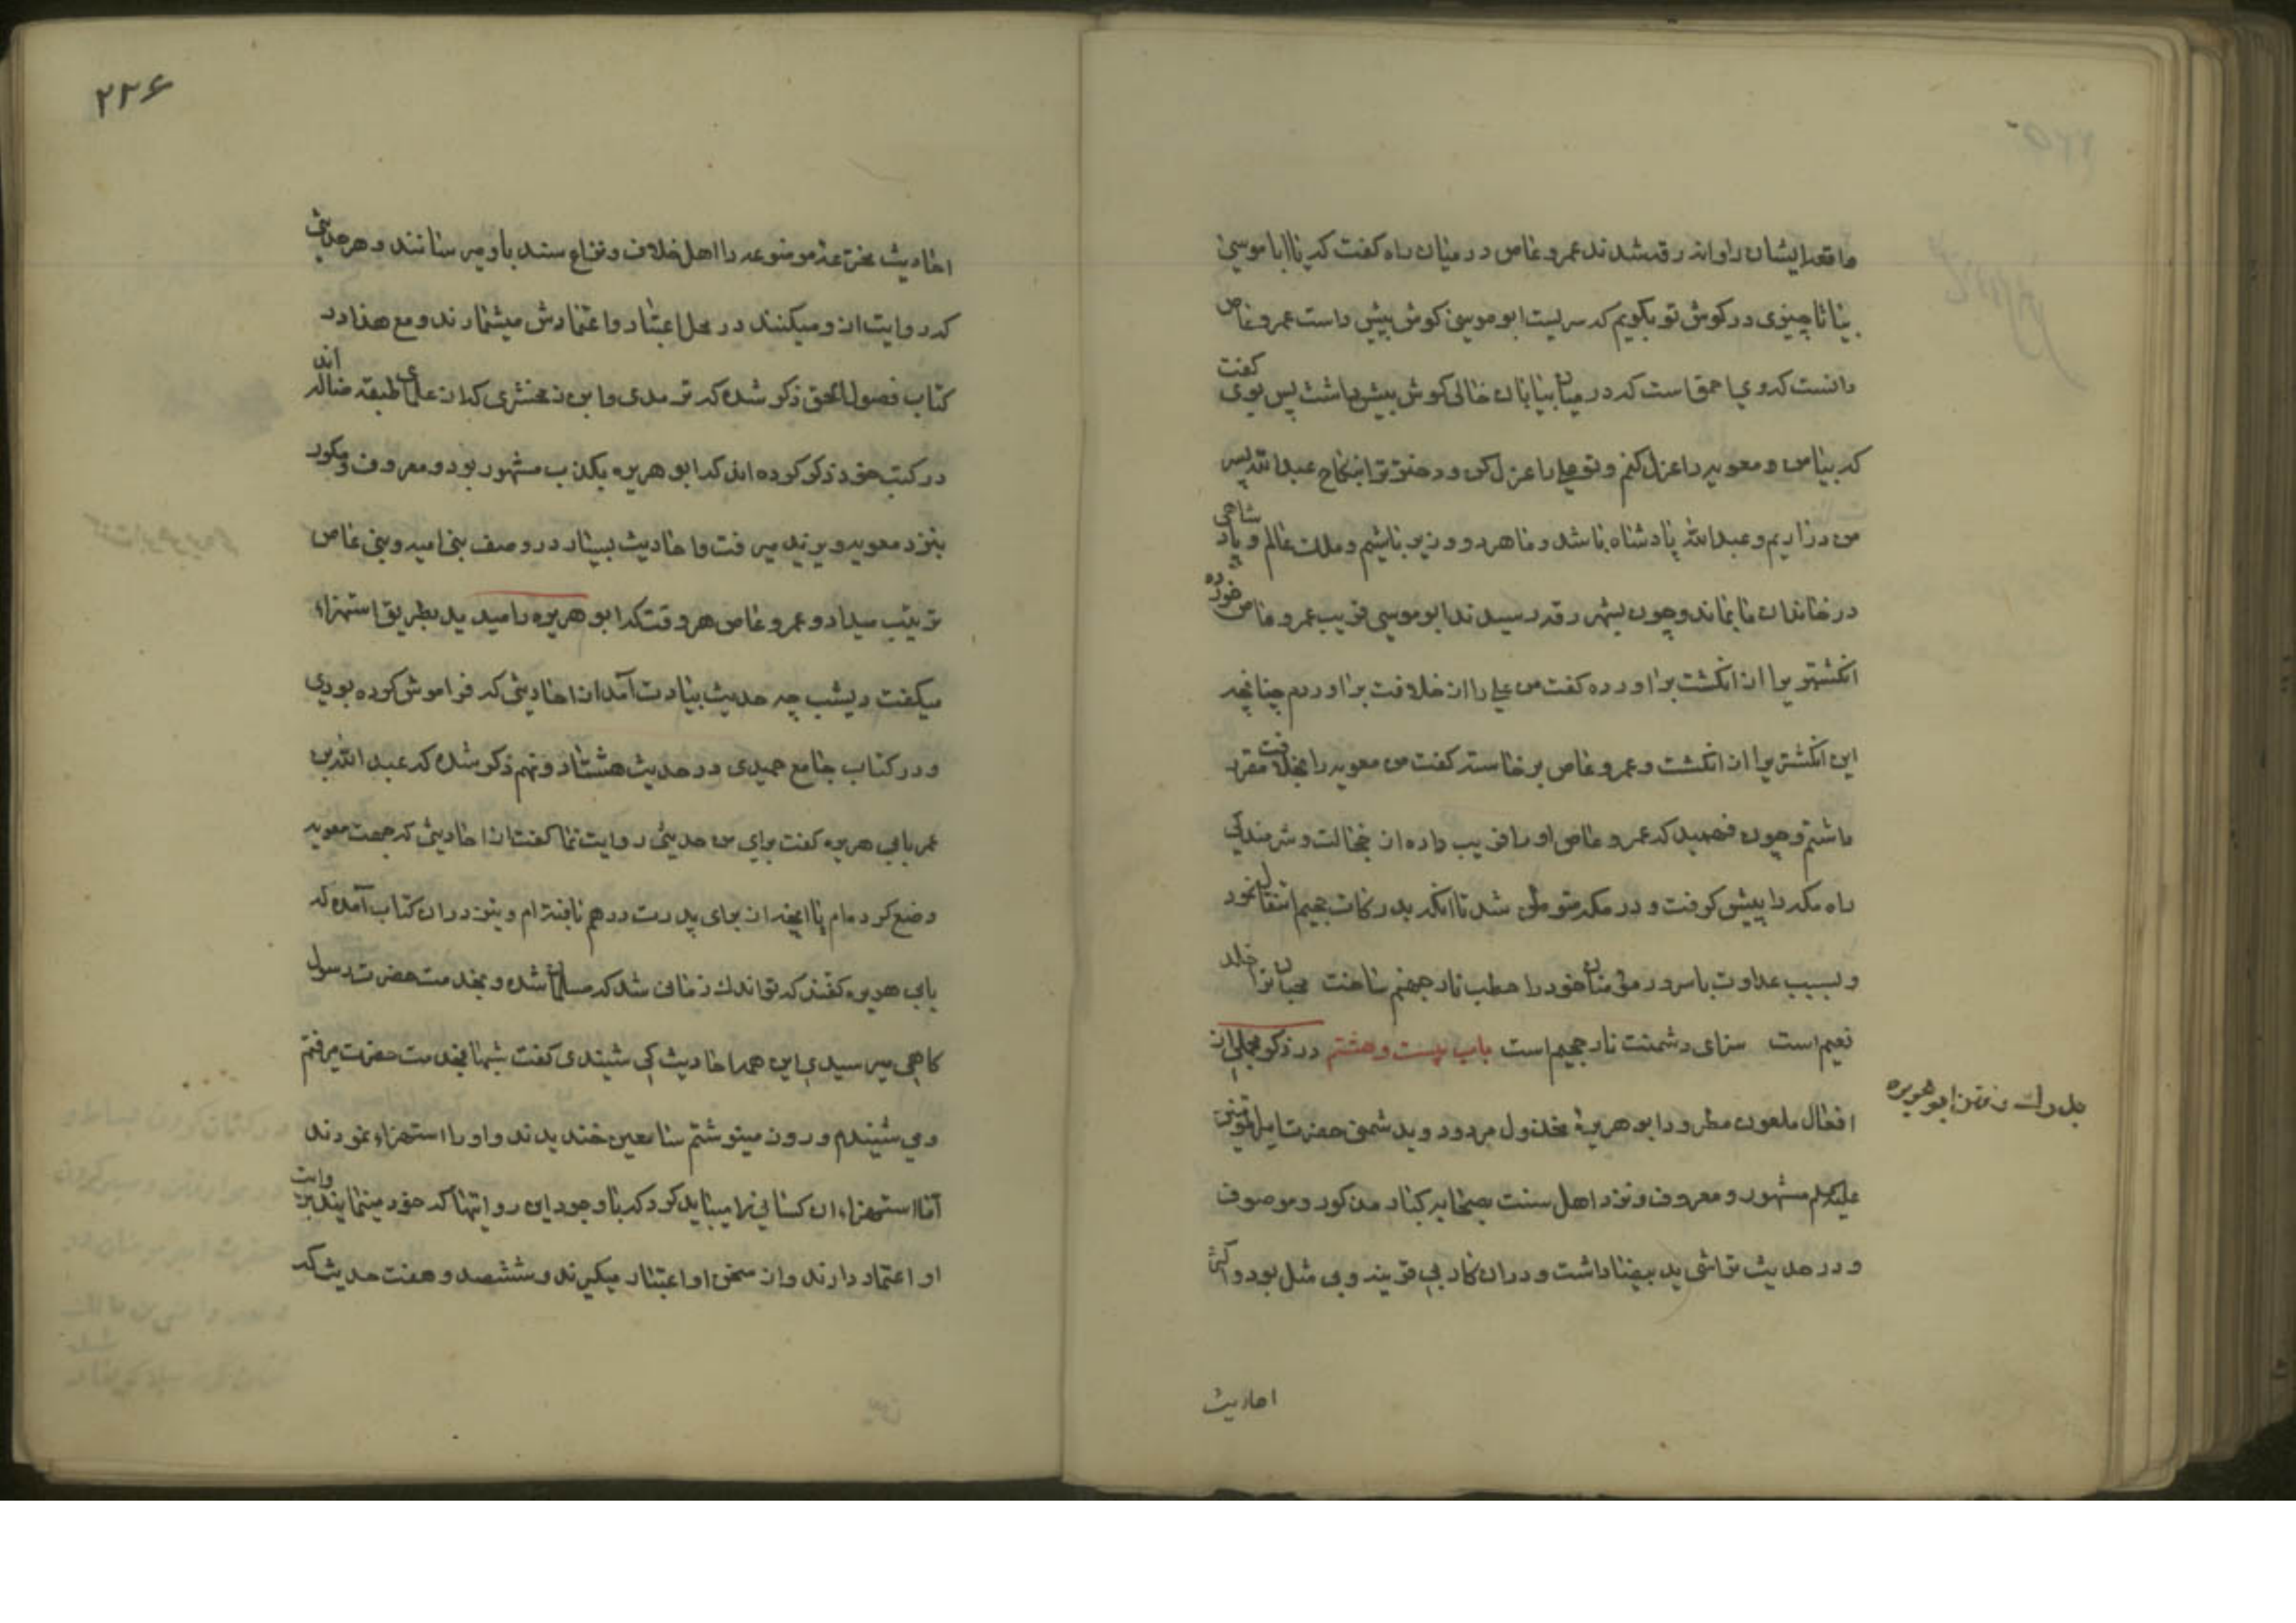 ما قعد ایشان روانه رقه شدند عمرو عاص در میان راه کفت که یا ابا موسی
بیا تا چیزی در کوش تو بکویم که سریست ابو موسی کوش پیش داشت عمرو عاص
دانست که وی احمق است که در میان بیابان خالی کوش پیش داشت پس بوی کفت
که بیا من و معویه را عزل کنم و تو علی را عزل کن و دختر ترا بنکاح عبد الله پسر
من در اریم و عبد الله پادشاه باشد و ما هر دو وزیر باشیم و ملک عالم و پادشاهی
در خاندان ما بماند و چون بشهر رقه رسیدند ابو موسی فریب عمرو عاص خورده
انکشتریرا از انکشت براورده کفت من علی را از خلافت براوردم چنانچه
این انکشتریرا از انکشت و عمرو عاص برخاسته کفت من معویه را بخلافت مقرر
داشتم و چون فهمید که عمرو عاص او را فریب داده از خجالت و شرمندکی
راه مکه را پیش کرفت و در مکه متوطن شد تا انکه بدرکات جحیم انتقال نمود
و بسبب عداوت با سرور مؤمنان خود را حطب نار جهنم ساخت محبانرا خلد
نعیم است سزای دشمنت نار جحیم است باب بیست و هشتم در ذکر مجملی از
افعال ملعون مطرود ابو هریره مخذول مردود و بدشمنی حضرت امیر المؤمنین
علیه السلم مشهور و معروف و نزد اهل سنت بصحابه کبار مذکور و موصوف
و در حدیث تراشی ید بیضا داشت و در ان کار بی قرینه و بی مثل بود و اکثر
بدرک رفتن ابو هریره
احادیث
۲۲۶
احادیث مخترعه موضوعه را اهل خلاف و نزاع سند باو میرسانند و هر حدیثی
که روایت از و میکنند در محل اعتبار و اعتمادش میشمارند و مع هذا در
کتاب فصول الحق ذکر شده که ترمدی و ابن زمخشری که از علمای طبقه ضاله اند
در کتب خود ذکر کرده اند که ابو هریره بکذب مشهور بود و معروف و مکرر
بنزد معویه و یزید میرفت و احادیث بسیار در وصف بنی امیه و بنی عاص
ترتیب میداد و عمرو عاص هر وقت که ابو هریره را میدید بطریق استهزاء
میکفت دیشب چه حدیث بیادت آمد از احادیثی که فراموش کرده بودی
و در کتاب جامع حمیدی در حدیث هشتاد و نهم ذکر شده که عبد الله بن
عمر بابی هریره کفت برای من حدیثی روایت نما کفت از احادیثی که جهت معویه
وضع کرده ام یا انچه از برای پدرت درهم بافته ام و نیز در ان کتاب آمده که
بابی هریره کفتند که تو اندک زمانی شد که مسلمان شده و بخدمت حضرت رسول
کاهی میرسیدی این همه احادیث کی شنیدی کفت شبها بخدمت حضرت میرفتم
و می شنیدم و روز مینوشتم سامعین خندیدند و او را استهزاء نمودند
اما استهزاء ان کسانی را میباید کرد که با وجود این روایتها که خود مینمایند بروایت
او اعتماد دارند و از سخن او اعتبار میکیرند و ششصد و هفت حدیث که